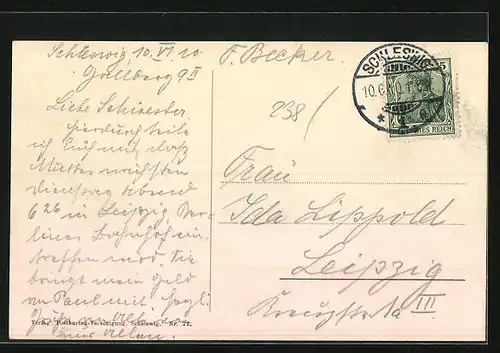 Schleswig 10. VI. 10.
Gallberg 9 II
Liebe Schwester
hierdurch teile
ich Euch mit daß
Mutter nächsten
Dienstag abend
6 26 in Leipzig Ber-
liner Bahnhof ein-
treffen wird. Sie
bringt mein Geld
an Paul mit herzl.
Verlag: Postkarten-Vereinigung, Schleswig. Nr. 22.
F. Becker.
238/
SCHLESWIG
10.6.10
DEUTSCHES REICH
5
Frau
Ida Lippold
Leipzig
Kreuzstr.
III